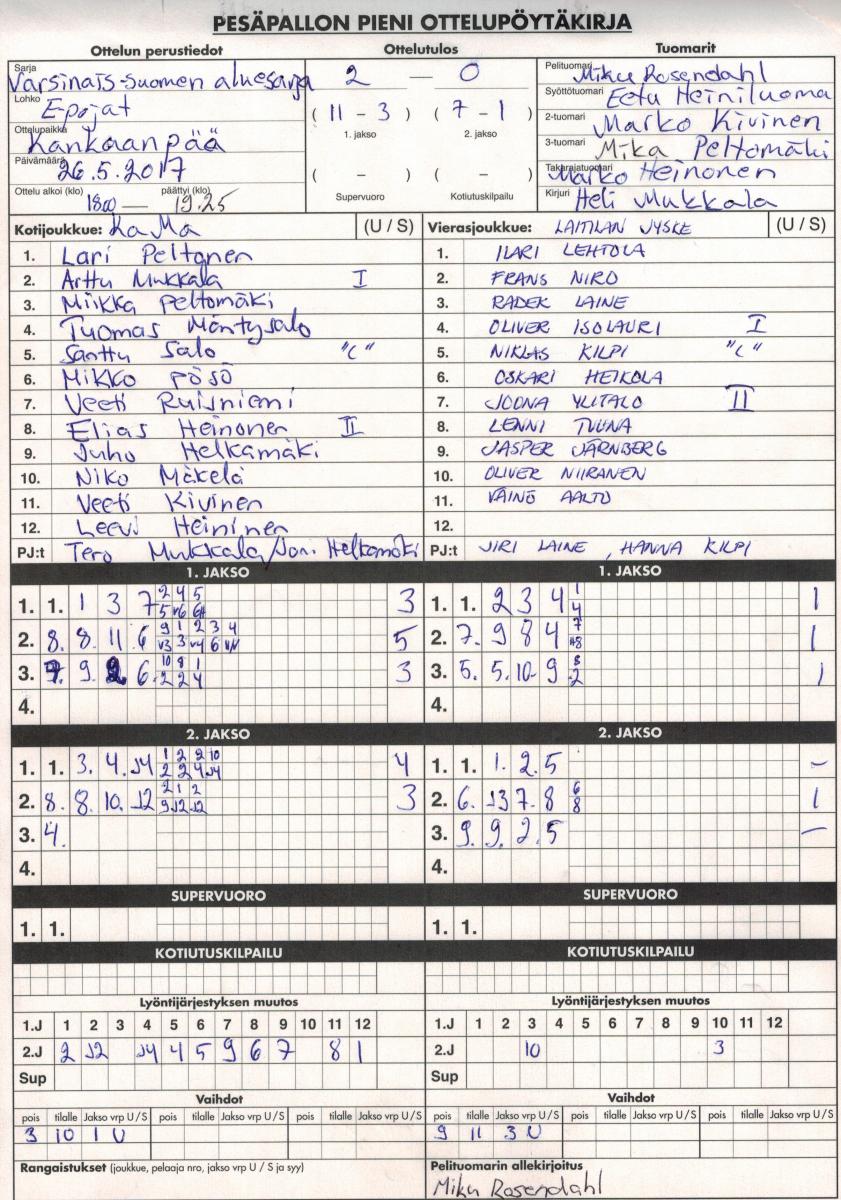 PESÄPALLON PIENI OTTELUPÖYTÄKIRJA
Ottelun perustiedot
Sarja
Varsinais-Suomen aluesarja
Lohko
E-pojat
Ottelupaikka
Kankaanpää
Päivämäärä
26.5.2017
Ottelu alkoi (klo) päättyi (klo)
18.00 — 19.25
Ottelutulos
2 — 0
( 11 - 3 ) ( 7 - 1 )
1. jakso 2. jakso
( - ) ( - )
Supervuoro Kotiutuskilpailu
Tuomarit
Pelituomari Miku Rosendahl
Syöttötuomari Eetu Heiniluoma
2-tuomari Marko Kivinen
3-tuomari Mika Peltomäki
Takarajatuomari Marko Heinonen
Kirjuri Heli Mukkala
Kotijoukkue: KaMa (U / S)
1. Lari Peltonen
2. Arttu Mukkala I
3. Miikka Peltomäki
4. Tuomas Mäntysalo
5. Santtu Salo "C"
6. Mikko Pösö
7. Veeti Ruisniemi
8. Elias Heinonen II
9. Juho Helkamäki
10. Niko Mäkelä
11. Veeti Kivinen
12. Leevi Heininen
PJ:t Tero Mukkala/Joni Helkamäki
Vierasjoukkue: LAITILAN JYSKE (U / S)
1. ILARI LEHTOLA
2. FRANS NIRO
3. RADEK LAINE
4. OLIVER ISOLAURI I
5. NIKLAS KILPI "C"
6. OSKARI HEIKOLA
7. JOONA YLITALO II
8. LENNI TUUNA
9. JASPER JÄRNBERG
10. OLIVER NIIRANEN
11. VÄINÖ AALTO
12.
PJ:t JIRI LAINE, HANNA KILPI
1. JAKSO
2 4 5
1. 1. 1 3 7 3
9 1 2 3 4
2. 8. 8. 11. 6 5
10 8 1
3. 7. 9. 2 6. 2 2 4 3
4.
1. JAKSO
1
1. 1. 2 3 4 4 1
7
2. 7. 9 8 4 1
8
3. 5. 5. 10. 9 2 1
4.
2. JAKSO
1 2 2 10
1. 1. 3. 4. J4 2 2 4 J4 4
2 1 2
2. 8. 8. 10. J2 9 J2 J2 3
3. 4.
4.
2. JAKSO
1. 1. 1. 2. 5 –
6
2. 6. J3 7. 8 8 1
3. 9. 9. 2. 5 –
4.
SUPERVUORO
1. 1.
SUPERVUORO
1. 1.
KOTIUTUSKILPAILU
KOTIUTUSKILPAILU
Lyöntijärjestyksen muutos
1.J 1 2 3 4 5 6 7 8 9 10 11 12
2.J 2 J2 J4 4 5 9 6 7 8 1
Sup
Lyöntijärjestyksen muutos
1.J 1 2 3 4 5 6 7 8 9 10 11 12
2.J 10 3
Sup
Vaihdot
pois tilalle Jakso vrp U / S pois tilalle Jakso vrp U / S pois tilalle Jakso vrp U / S
3 10 1 U
Vaihdot
pois tilalle Jakso vrp U / S pois tilalle Jakso vrp U / S pois tilalle Jakso vrp U / S
9 11 3 U
Rangaistukset (joukkue, pelaaja nro, jakso vrp U / S ja syy)
Pelituomarin allekirjoitus
Miku Rosendahl